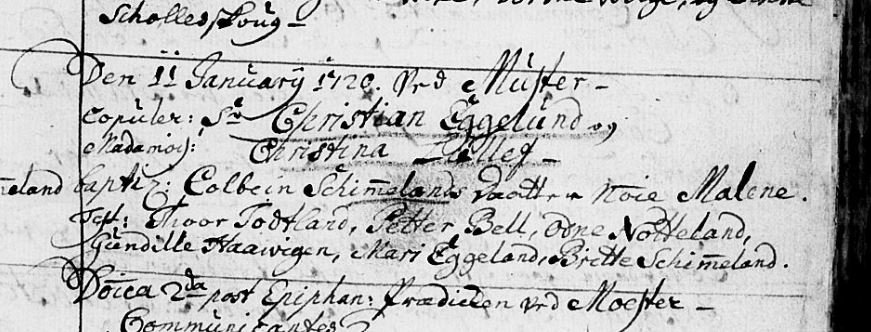 Scholleskoug –
Den 11 Januarij 172 . Ved Muster –
Copuler: Sr Christian Eggelund og
Madamois: Christina –
meland baptiz: Colbein Schim̄elands Daatter Malene.
Test: Thoor Todtland, Petter Bell, Odne Notteland,
Gundille Haawigen, Mari Eggeland, Britte Schim̄eland.
Doīca 2da post Epiphan: Prædicken ved Moester –
Communicantes